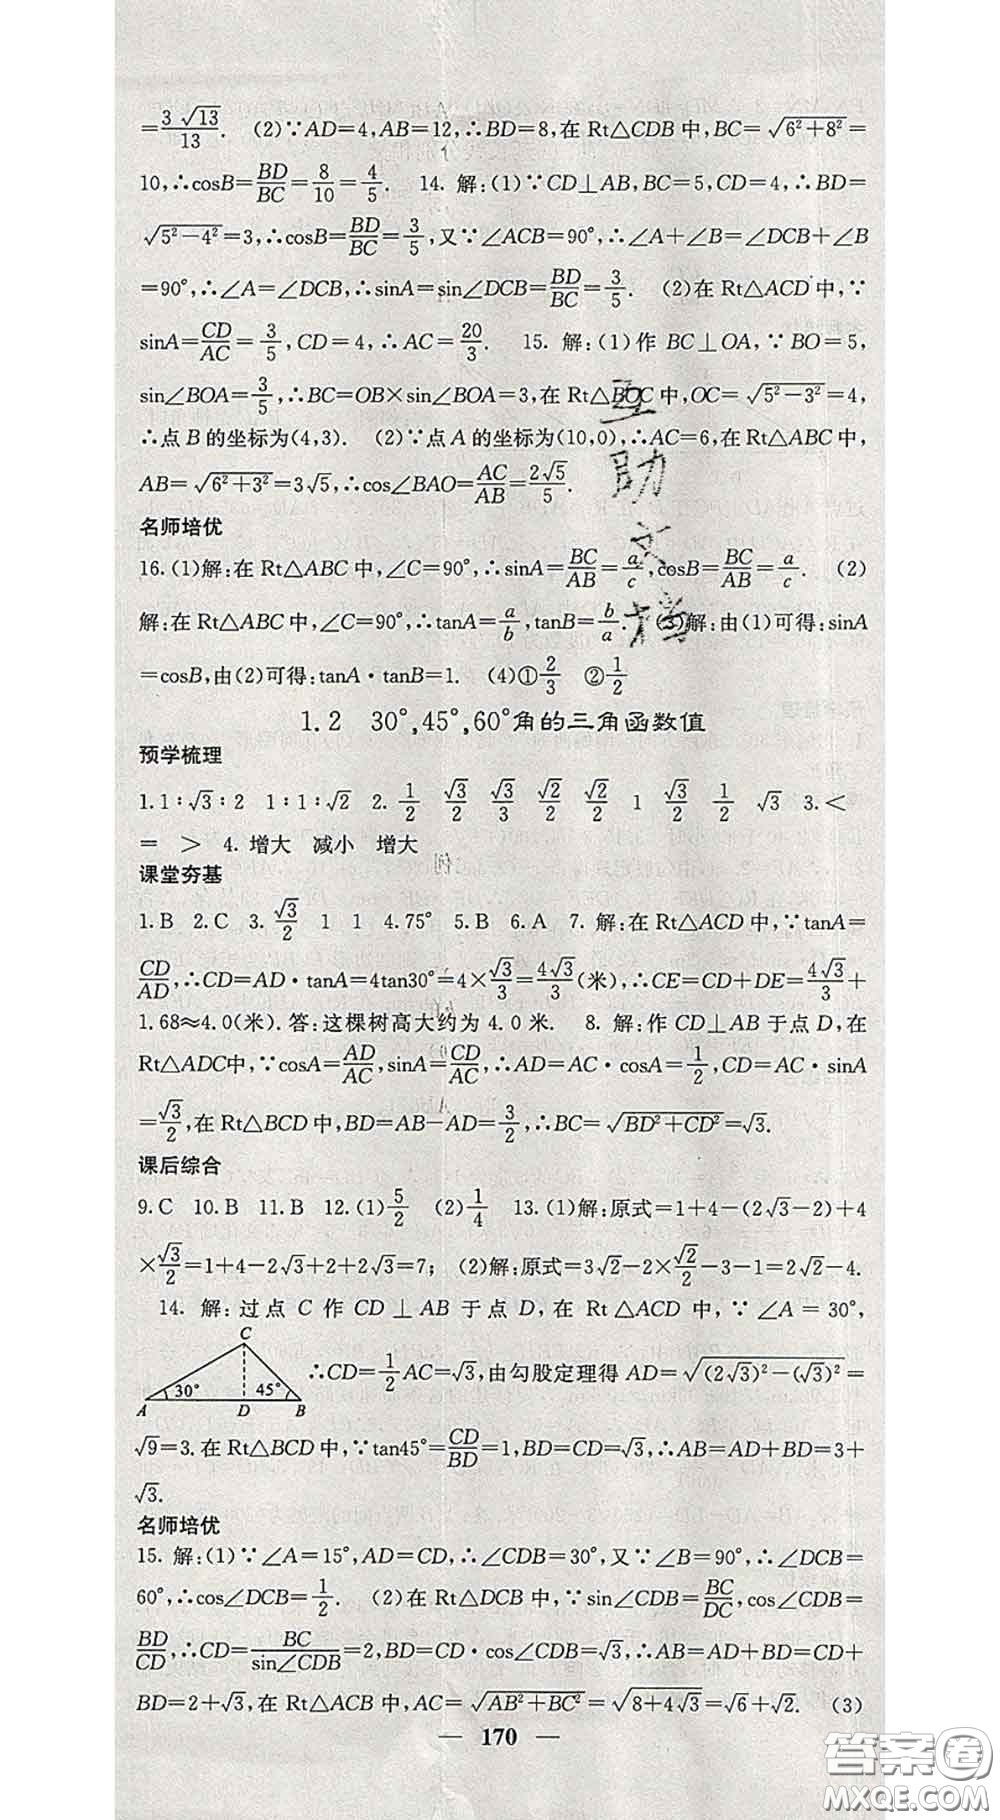 =3√13/13. (2)∵AD=4,AB=12,∴BD=8,在 Rt△CDB 中,BC=√(6²+8²)=
10,∴cosB=BD/BC=8/10=4/5. 14. 解:(1)∵CD⊥AB,BC=5,CD=4,∴BD=
√(5²-4²)=3,∴cosB=BD/BC=3/5,又∵∠ACB=90°,∴∠A+∠B=∠DCB+∠B
=90°,∴∠A=∠DCB,∴sinA=sin∠DCB=BD/BC=3/5. (2)在 Rt△ACD 中,∵
sinA=CD/AC=3/5,CD=4,∴AC=20/3. 15. 解:(1)作 BC⊥OA,∵BO=5,
sin∠BOA=3/5,∴BC=OB×sin∠BOA=3,在 Rt△BOC 中,OC=√(5²-3²)=4,
∴点 B 的坐标为(4,3). (2)∵点 A 的坐标为(10,0),∴AC=6,在 Rt△ABC 中,
AB=√(6²+3²)=3√5,∴cos∠BAO=AC/AB=2√5/5.
名师培优
16.(1)解:在 Rt△ABC 中,∠C=90°,∴sinA=BC/AB=a/c,cosB=BC/AB=a/c. (2)
解:在 Rt△ABC 中,∠C=90°,∴tanA=a/b,tanB=b/a. (3)解:由(1)可得:sinA
=cosB,由(2)可得:tanA·tanB=1. (4)①2/3 ②1/2
1.2 30°,45°,60°角的三角函数值
预学梳理
1.1∶√3∶2 1∶1∶√2 2.1/2 √3/2 √3/3 √2/2 √2/2 1 √3/2 1/2 √3 3.<
= > 4. 增大 减小 增大
课堂夯基
1.B 2.C 3.√3/2 1 1 4.75° 5.B 6.A 7. 解:在 Rt△ACD 中,∵tanA=
CD/AD,∴CD=AD·tanA=4tan30°=4×√3/3=4√3/3(米),∴CE=CD+DE=4√3/3+
1.68≈4.0(米). 答:这棵树高大约为 4.0 米. 8. 解:作 CD⊥AB 于点 D,在
Rt△ADC中,∵cosA=AD/AC,sinA=CD/AC,∴AD=AC·cosA=1/2,CD=AC·sinA
=√3/2,在 Rt△BCD 中,BD=AB-AD=3/2,∴BC=√(BD²+CD²)=√3.
课后综合
9.C 10.B 11.B 12.(1)5/2 (2)1/4 13.(1)解:原式=1+4-(2√3-2)+4
×√3/2=1+4-2√3+2+2√3=7; (2)解:原式=3√2-2×√2/2-3-1=2√2-4.
14. 解:过点 C 作 CD⊥AB 于点 D,在 Rt△ACD 中,∵∠A=30°,
C
30° 45°
A D B
∴CD=1/2AC=√3,由勾股定理得 AD=√((2√3)²-(√3)²)=
√9=3. 在 Rt△BCD 中,∵tan45°=CD/BD=1,BD=CD=√3,∴AB=AD+BD=3+
√3.
名师培优
15. 解:(1)∵∠A=15°,AD=CD,∴∠CDB=30°,又∵∠B=90°,∴∠DCB=
60°,∴cos∠DCB=1/2. (2)在 Rt△DCB 中,∵sin∠CDB=BC/DC,cos∠CDB=
BD/CD,∴CD=BC/sin∠CDB=2,BD=CD·cos∠CDB=√3,∴AB=AD+BD=CD+
BD=2+√3,在 Rt△ACB 中,AC=√(AB²+BC²)=√(8+4√3)=√6+√2. (3)
— 170 —
互助文档
答案圈
MXQE.COM